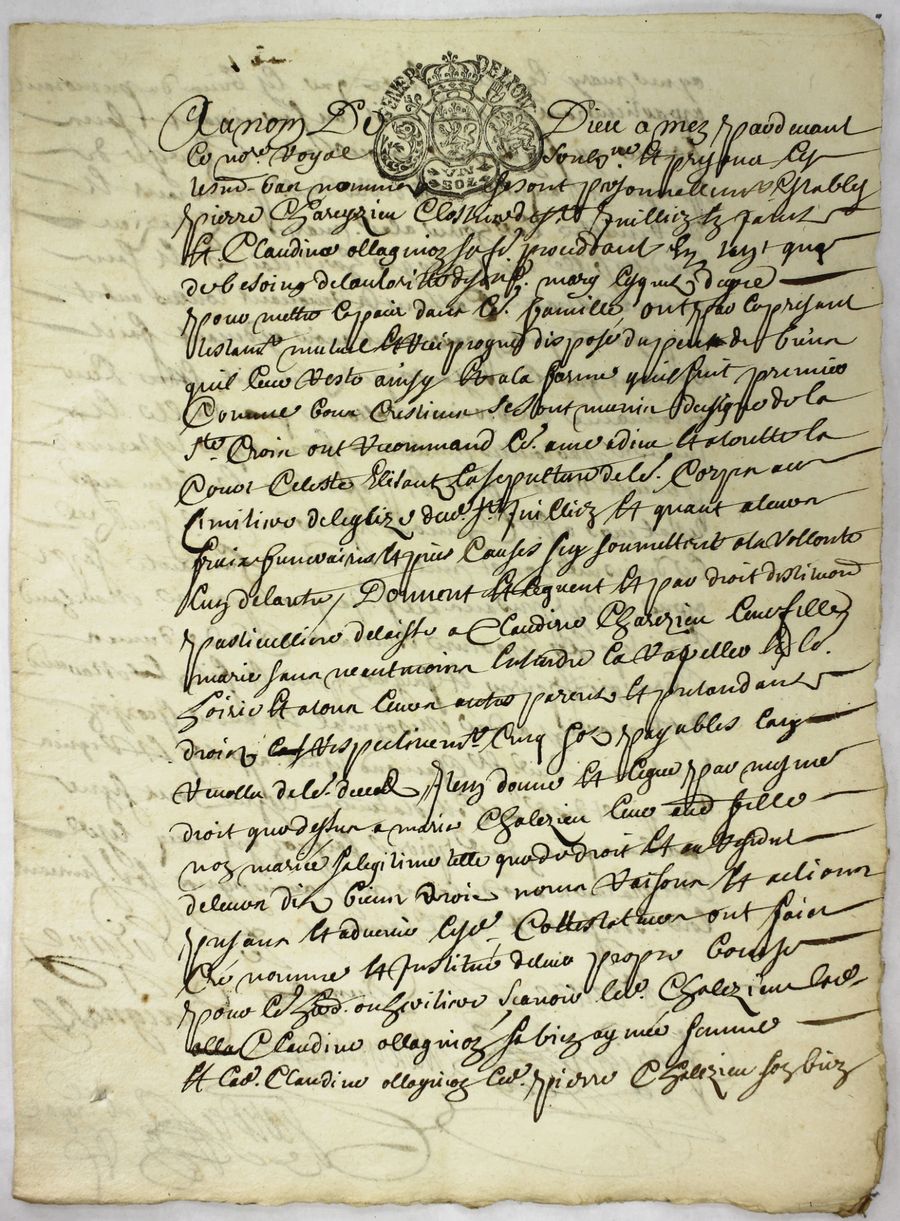 GENER DE LION
UN SOL
Au nom De Dieu amez pardevant
le nore royal soubzne et presans les
tesm. bas nommes se sont personnellement establis
pierre Chareyzieu de St Juilliez en Jarest
et Claudine ollagnioz sa fe. proceddant en tant que
de besoing de lautoritte dud. mary lesquels de gre
pour mettre la paix dans le. famille ont par le presant
testamt mutuel et reciproque dispose du peu de biens
quil leur reste ainsy et a la forme qui suit premier
Comme bons Crestiens se sont munis du signe de la
ste Croix ont recommandé le. ame a dieu et a toutte la
Cour Celeste Elisant la sepulture de le. Corps au
Cimitiere de leglize dud. St Juilliez et quant a leurs
frais funeraires et pies Causes sy soumettent a la vollonte
lun de lautre, Donnent et leguent et par droit dinstitution
particulliere delaisse a Claudine Charezieu leur fille
mariee sans neantmoins entendre la rapeller a le.
hoirie et a tous leurs autres parents et pretandants
droits respectivemt Cinq sos payables lors
de le. deced Item donne et legue par mesme
droit que dessus a marie Chalezieu leur aud fille
non mariee sa legitime telle que de droit et au residut
de leurs dits biens droits noms raisons et actions
presans et advenir lesd. testateurs ont fait
Cré nommé et Institué de leur propre bouche
pour le. herd. ou heritiere scavoir led. Chalezieu lad.
Claudine ollagnioz sa bien aymée femme
et lad. Claudine ollagnioz led. pierre Chalezieu son bien